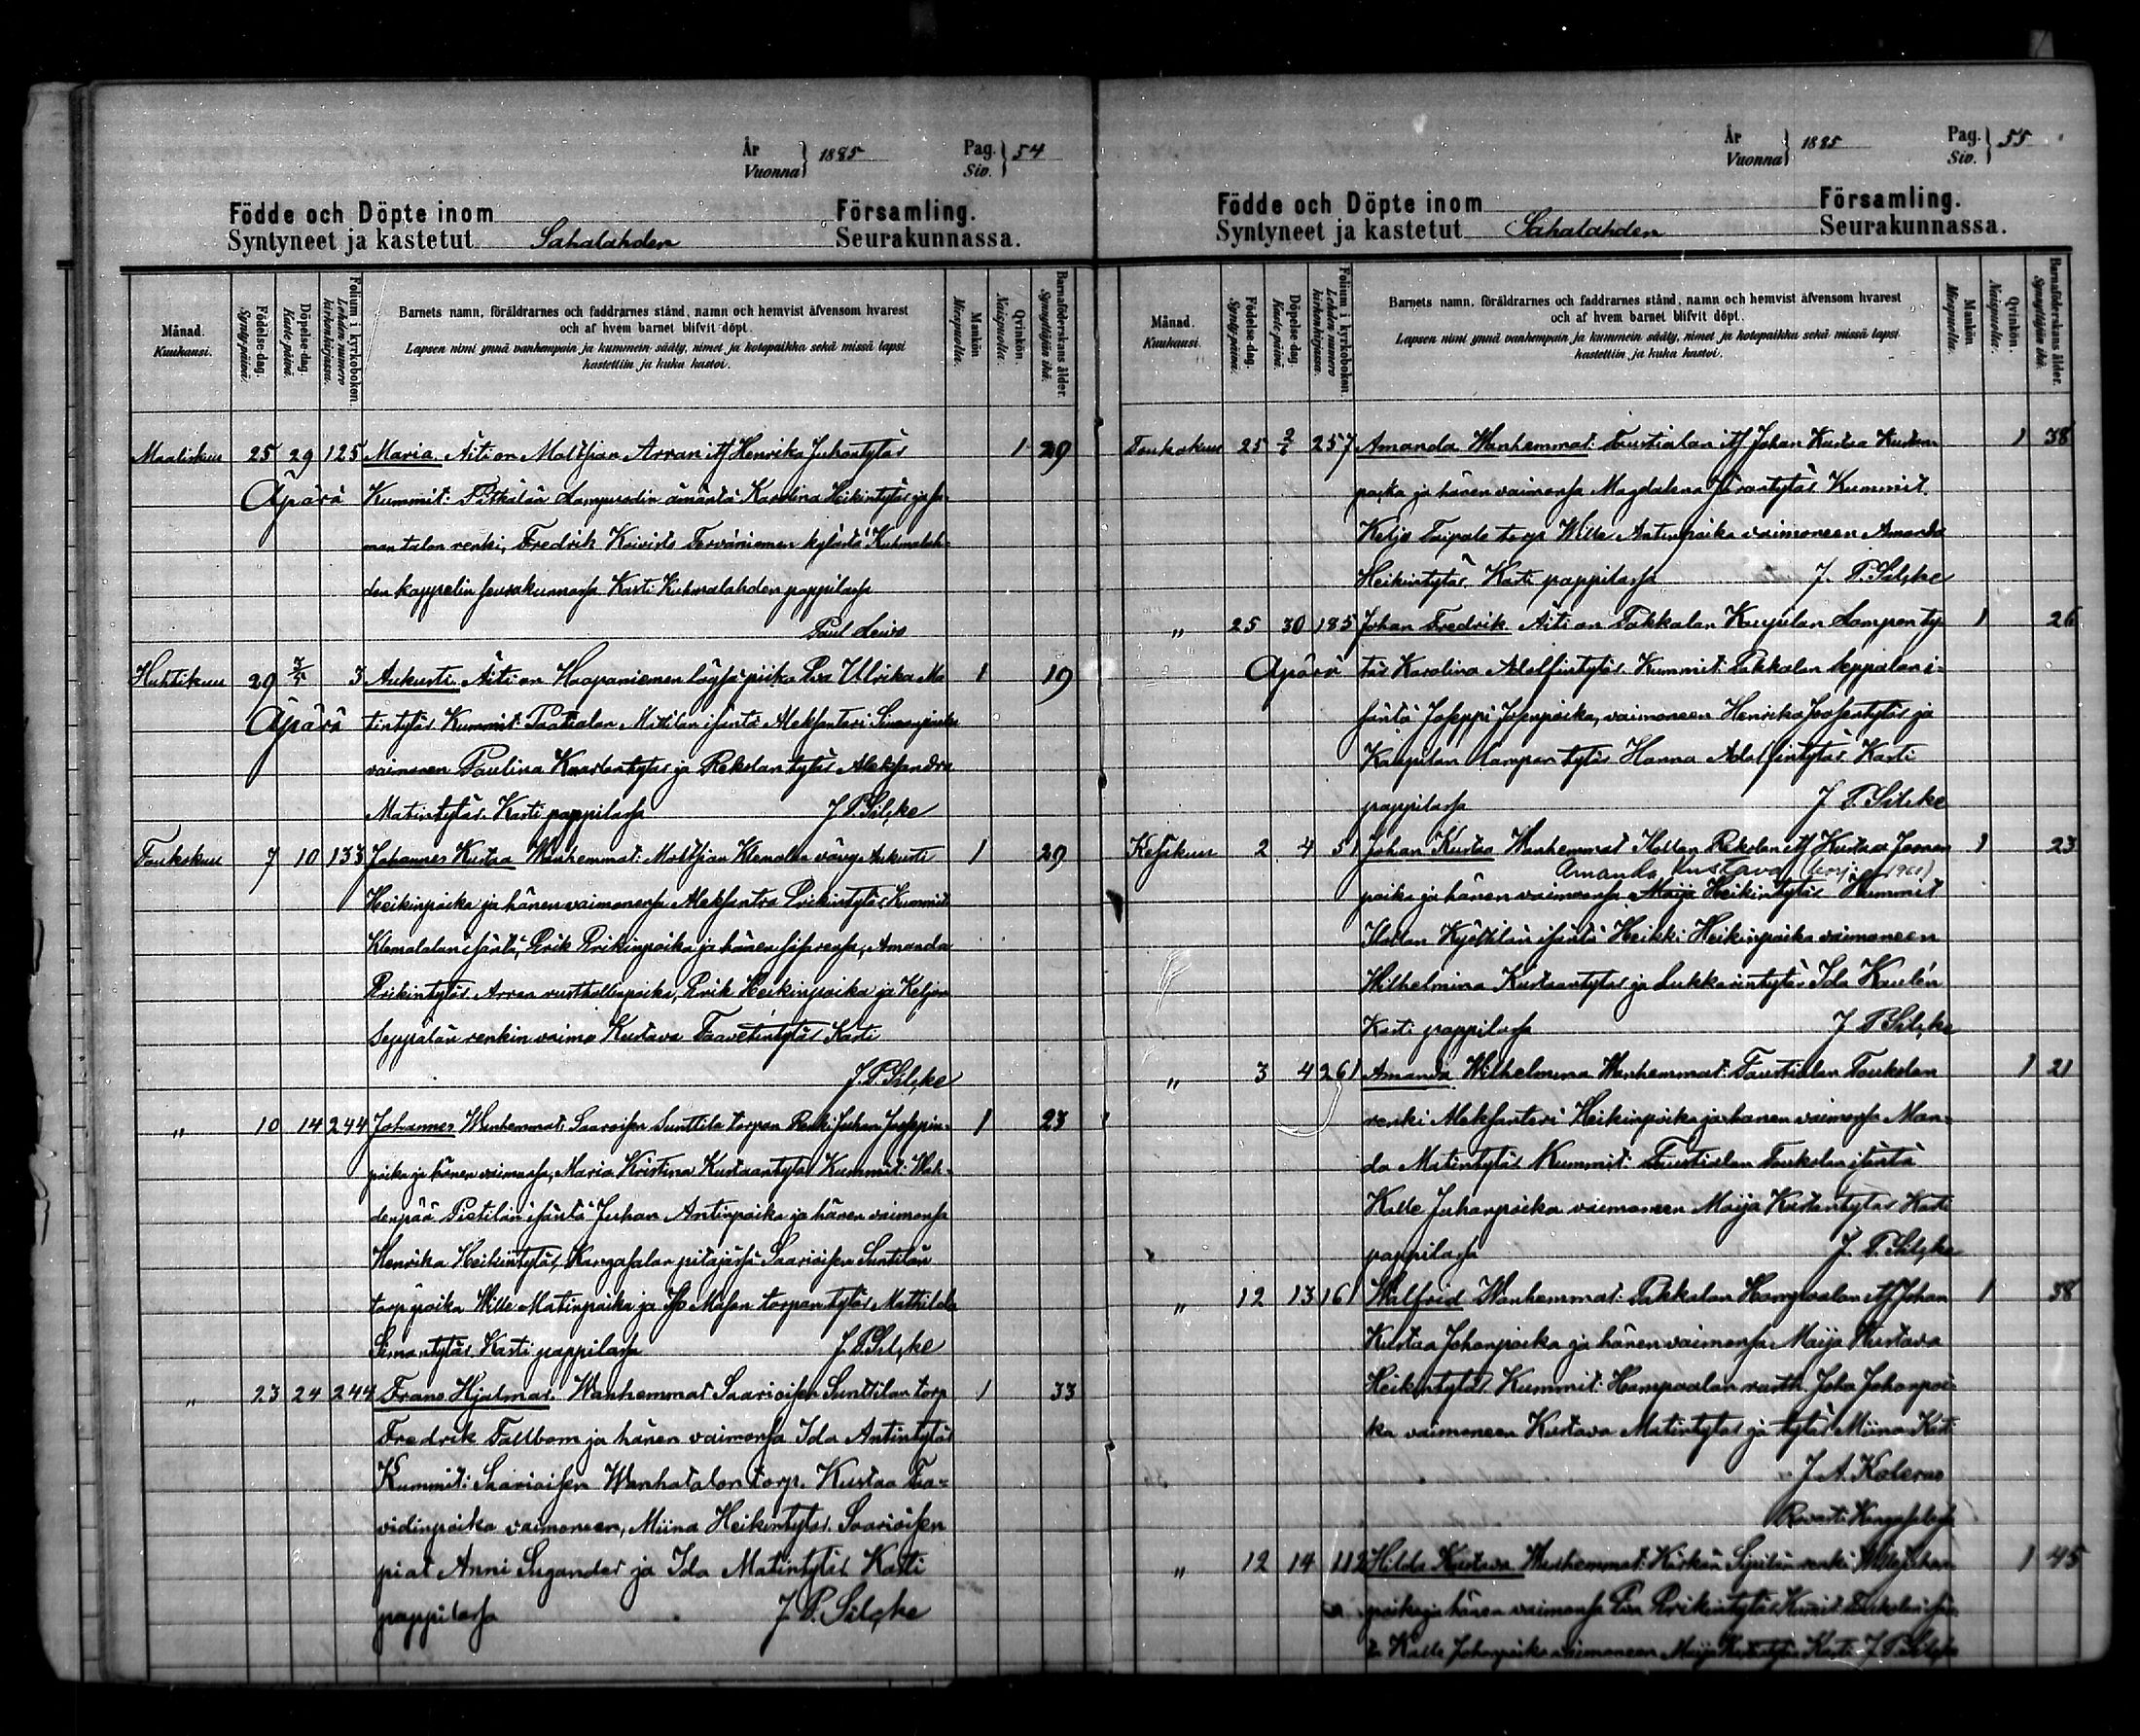 År
Vuonna } 1885 Pag.
Siv. } 54
Födde och Döpte inom Församling.
Syntyneet ja kastetut Sahalahden Seurakunnassa.
Månad. Kuukausi.
Födelse-dag. Synty-päivä.
Döpelse-dag. Kaste-päivä.
Folium i kyrkobokon. Lehden numero kirkonkirjassa.
Barnets namn, föräldrarnes och faddrarnes stånd, namn och hemvist äfvensom hvarest
och af hvem barnet blifvit döpt.
Lapsen nimi ynnä vanhempain ja kummein sääty, nimet ja kotopaikka sekä missä lapsi
kastettiin ja kuka kastoi.
Mankön Miespuolia.
Qvinkön. Naispuolia.
Barnaföderskans ålder. Synnyttäjän ikä.
Maaliskuu 25 29 125 Maria Äiti on Moltsian Arran itf Henrika Juhontytär 1 29
Äpärä Kummit: Pitkälän Lampuodin emäntä Karolina Heikintytär ja sa-
man talon renki, Fredrik Koivisto Terväniemen kylästä Kuhmalah-
den kappelin seurakunnassa Kasti Kuhmalahden pappilassa
Paul Leivo
Huhtikuu 29 3/5 3 Aukusti Äiti on Haapaniemen piika Eva Ulrika Ma- 1 19
Äpärä tintytär Kummit: Mattilan isäntä Aleksanteri Simonpoika
vaimoneen Paulina Kustantytär ja Rekolan tytär Aleksandra
Matintytär. Kasti pappilassa J. P. Silcke
Toukokuu 7 10 133 Johannes Kustaa Wanhemmat: Moltsian Klemolan vävy Aukusti 1 29
Heikinpoika ja hänen vaimonsa Aleksantra Erikintytär Kummit
Klemolan isäntä, Erik Erikinpoika ja hänen sisarensa, Amanda
Erikintytär Arran rusthollinpoika, Erik Heikinpoika ja Keljon
Seppälän renkin vaimo Kustava Taavetintytär Kasti
J. P. Silcke
" 10 14 244 Johannes Wanhemmat: Saarioisen Sunttila torpan Renki Juhan Joseppin- 1 23
poika ja hänen vaimonsa, Maria Kristina Kustaantytär Kummit: Wah-
denpää Pietilän isäntä Juhan Antinpoika ja hänen vaimonsa
Henrika Heikintytär, Kangasalan pitäjässä Saarioisen Suntilan
torp poika Wille Matinpoika ja torpan tytär Mathilda
Simontytär. Kasti pappilassa J. P. Silcke
" 23 24 244 Frans Hjalmar. Wanhemmat Saarioisen Sunttilan torp 1 33
Fredrik Fallbom ja hänen vaimonsa Ida Antintytär
Kummit: Saarioisen Wanhatalon torp. Kustaa Taa-
vidinpoika vaimoneen, Miina Heikintytär Saarioisen
piiat Anni Sugander ja Ida Matintytär Kasti
pappilassa J. P. Silcke
År
Vuonna } 1885 Pag.
Siv. } 55
Födde och Döpte inom Församling.
Syntyneet ja kastetut Sahalahden Seurakunnassa.
Månad. Kuukausi.
Födelse-dag. Synty-päivä.
Döpelse dag. Kaste-päivä.
Folium i kyrkobokon. Lehden numero kirkonkirjassa.
Barnets namn, föräldrarnes och faddrarnes stånd, namn och hemvist äfvensom hvarest
och af hvem barnet blifvit döpt.
Lapsen nimi ynnä vanhempain ja kummein sääty, nimet ja kotopaikka sekä missä lapsi
kastettiin ja kuka kastoi.
Mankön Miespuolia.
Qvinkön. Naispuolia.
Barnaföderskans ålder. Synnyttäjän ikä.
Toukokuu 25 2/6 257 Amanda Wanhemmat: Taustialan itf Johan Kustaa Kustaan 1 38
poika ja hänen vaimonsa Magdalena Kummit.
Keljo Taipale torp Wille Antinpoika vaimoneen Amanda
Heikintytär. Kasti pappilassa J. P. Silcke
" 25 30 185 Johan Fredrik Äiti on Pakkalan Kaupilan Lampon ty- 1 26
Äpärä tär Karolina Adolfintytär. Kummit: Pakkalan Seppälän i-
säntä Joseppi Josepinpoika, vaimoneen Henrika Joosentytär ja
Kaupilan Lampon tytär Hanna Adolfintytär. Kasti
pappilassa J. P. Silcke
Kesäkuu 2 4 51 Johan Kustaa Wanhemmat Isoltan Rekolan itf Kustaa Joonan 1 23
Amanda Kustava (korj. 1960)
poika ja hänen vaimonsa Maija Heikintytär Kummit
Kyöttilän isäntä Heikki Heikinpoika vaimoneen
Wilhelmina Kustaantytär ja Lukkarintytär Ida Kaulén
Kasti pappilassa J. P. Silcke
" 3 4 261 Amanda Wilhelmina Wanhemmat: Taustialan Toukolan 1 21
renki Aleksanteri Heikinpoika ja hänen vaimonsa Man-
da Matintytär Kummit: Taustialan Toukolan isäntä
Kalle Juhanpoika vaimoneen Maija Kustantytär Kasti
pappilassa J. P. Silcke
" 12 13 161 Walfrid Wanhemmat: Pakkalan Hompaalan itf Johan 1 38
Kustaa Johanpoika ja hänen vaimonsa Maija Kustava
Heikintytär Kummit: Hompaalan rusth. Joha Johanpoi-
ka vaimoneen Kustava Matintytär ja tytär Miina Kasti
J. A.
Rovasti Kangasalasta
" 12 14 112 Hilda Kustava Wanhemmat: Sipilän renki Wille Johan 1 45
poika ja hänen vaimonsa Eva Erikintytär Kummit: Toukolan isän-
tä Kalle Johanpoika vaimoneen Maija Kustantytär Kasti J. P. Silcke